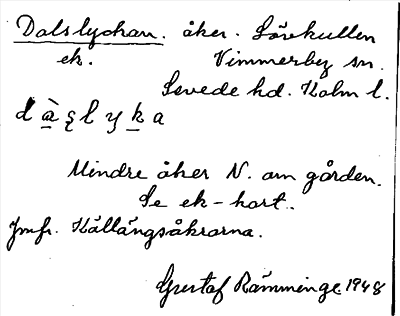 Dalslyckan. åker. Lövkullen
ek. Vimmerby sn.
Sevede hd. Kalm l.
d à s l y k a
Mindre åker N. om gården.
Se ek-kort.
Jmfr. Källängsåkrarna.
Gustaf Rämminge 1948